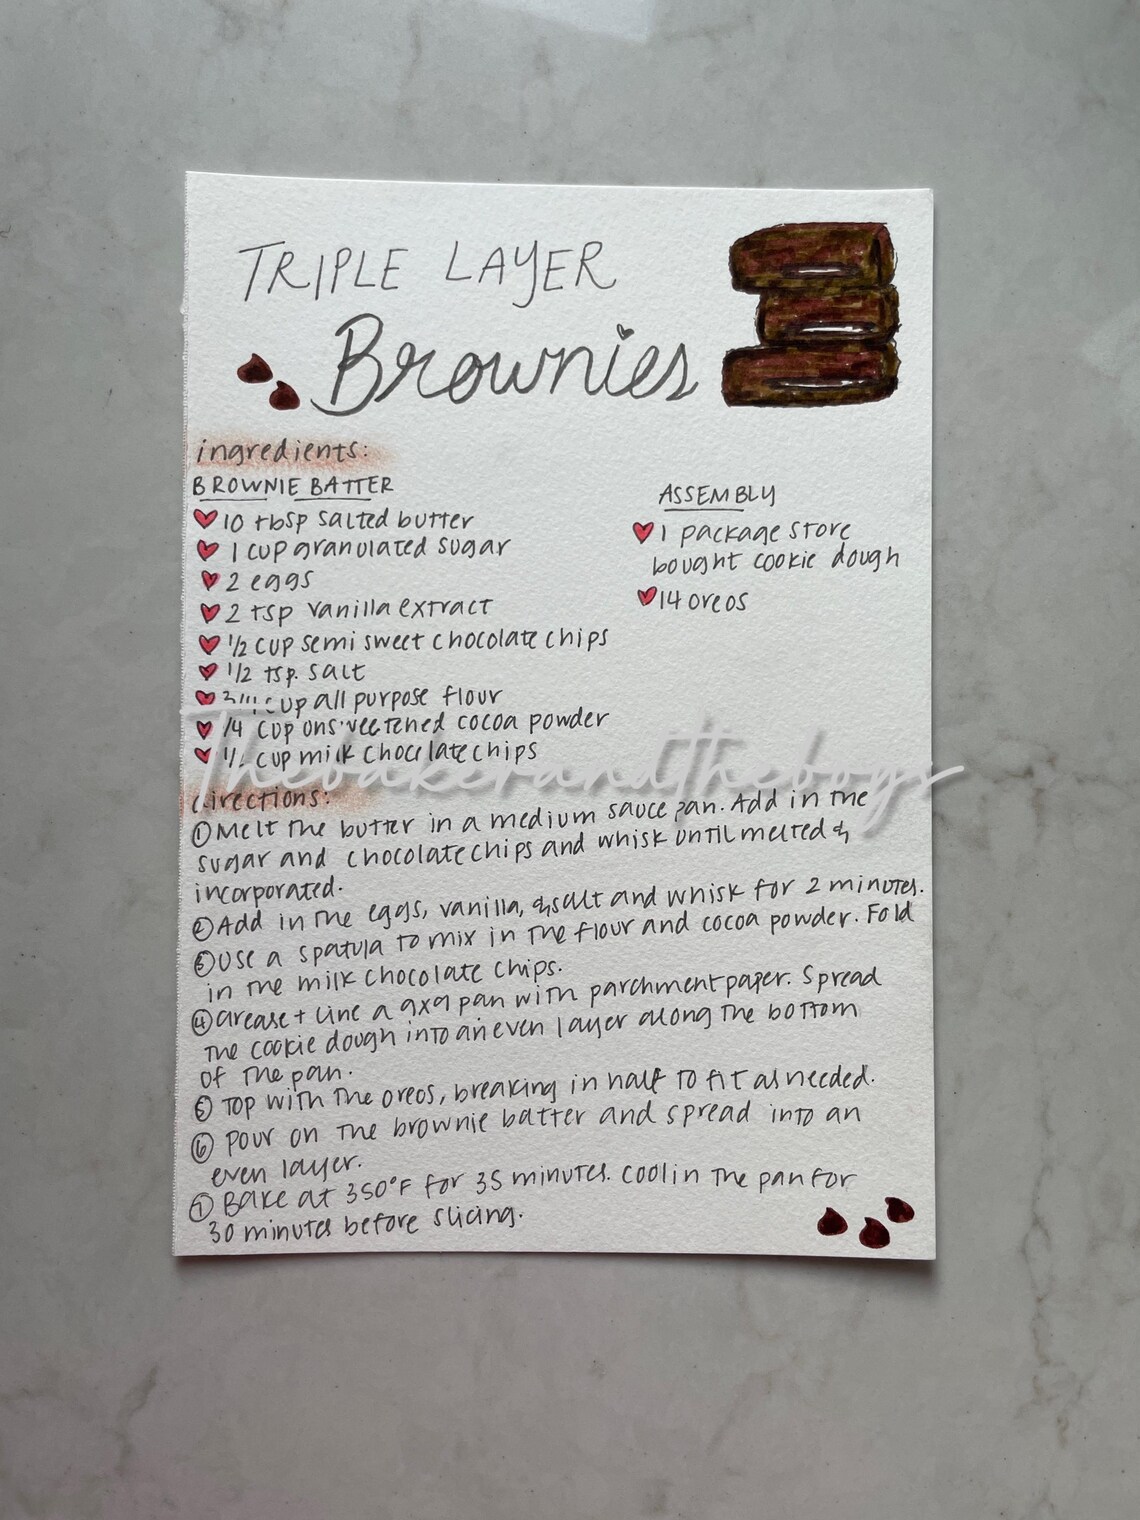 TRIPLE LAYER
Brownies
ingredients:
BROWNIE BATTER
10 tbsp salted butter
1 cup granulated sugar
2 eggs
2 tsp vanilla extract
1/2 cup semi sweet chocolate chips
1/2 tsp. salt
3/4 cup all purpose flour
1/4 cup unsweetened cocoa powder
cup milk chocolate chips
ASSEMBLY
1 package store
bought cookie dough
14 oreos
Thebakerandtheboys
directions:
① Melt the butter in a medium sauce pan. Add in the
sugar and chocolate chips and whisk until melted &
incorporated.
② Add in the eggs, vanilla, & salt and whisk for 2 minutes.
③ Use a spatula to mix in the flour and cocoa powder. Fold
in the milk chocolate chips.
④ Grease + line a 9x9 pan with parchment paper. Spread
the cookie dough into an even layer along the bottom
of the pan.
⑤ Top with the oreos, breaking in half to fit as needed.
⑥ Pour on the brownie batter and spread into an
even layer.
⑦ Bake at 350°F for 35 minutes. Cool in the pan for
30 minutes before slicing.